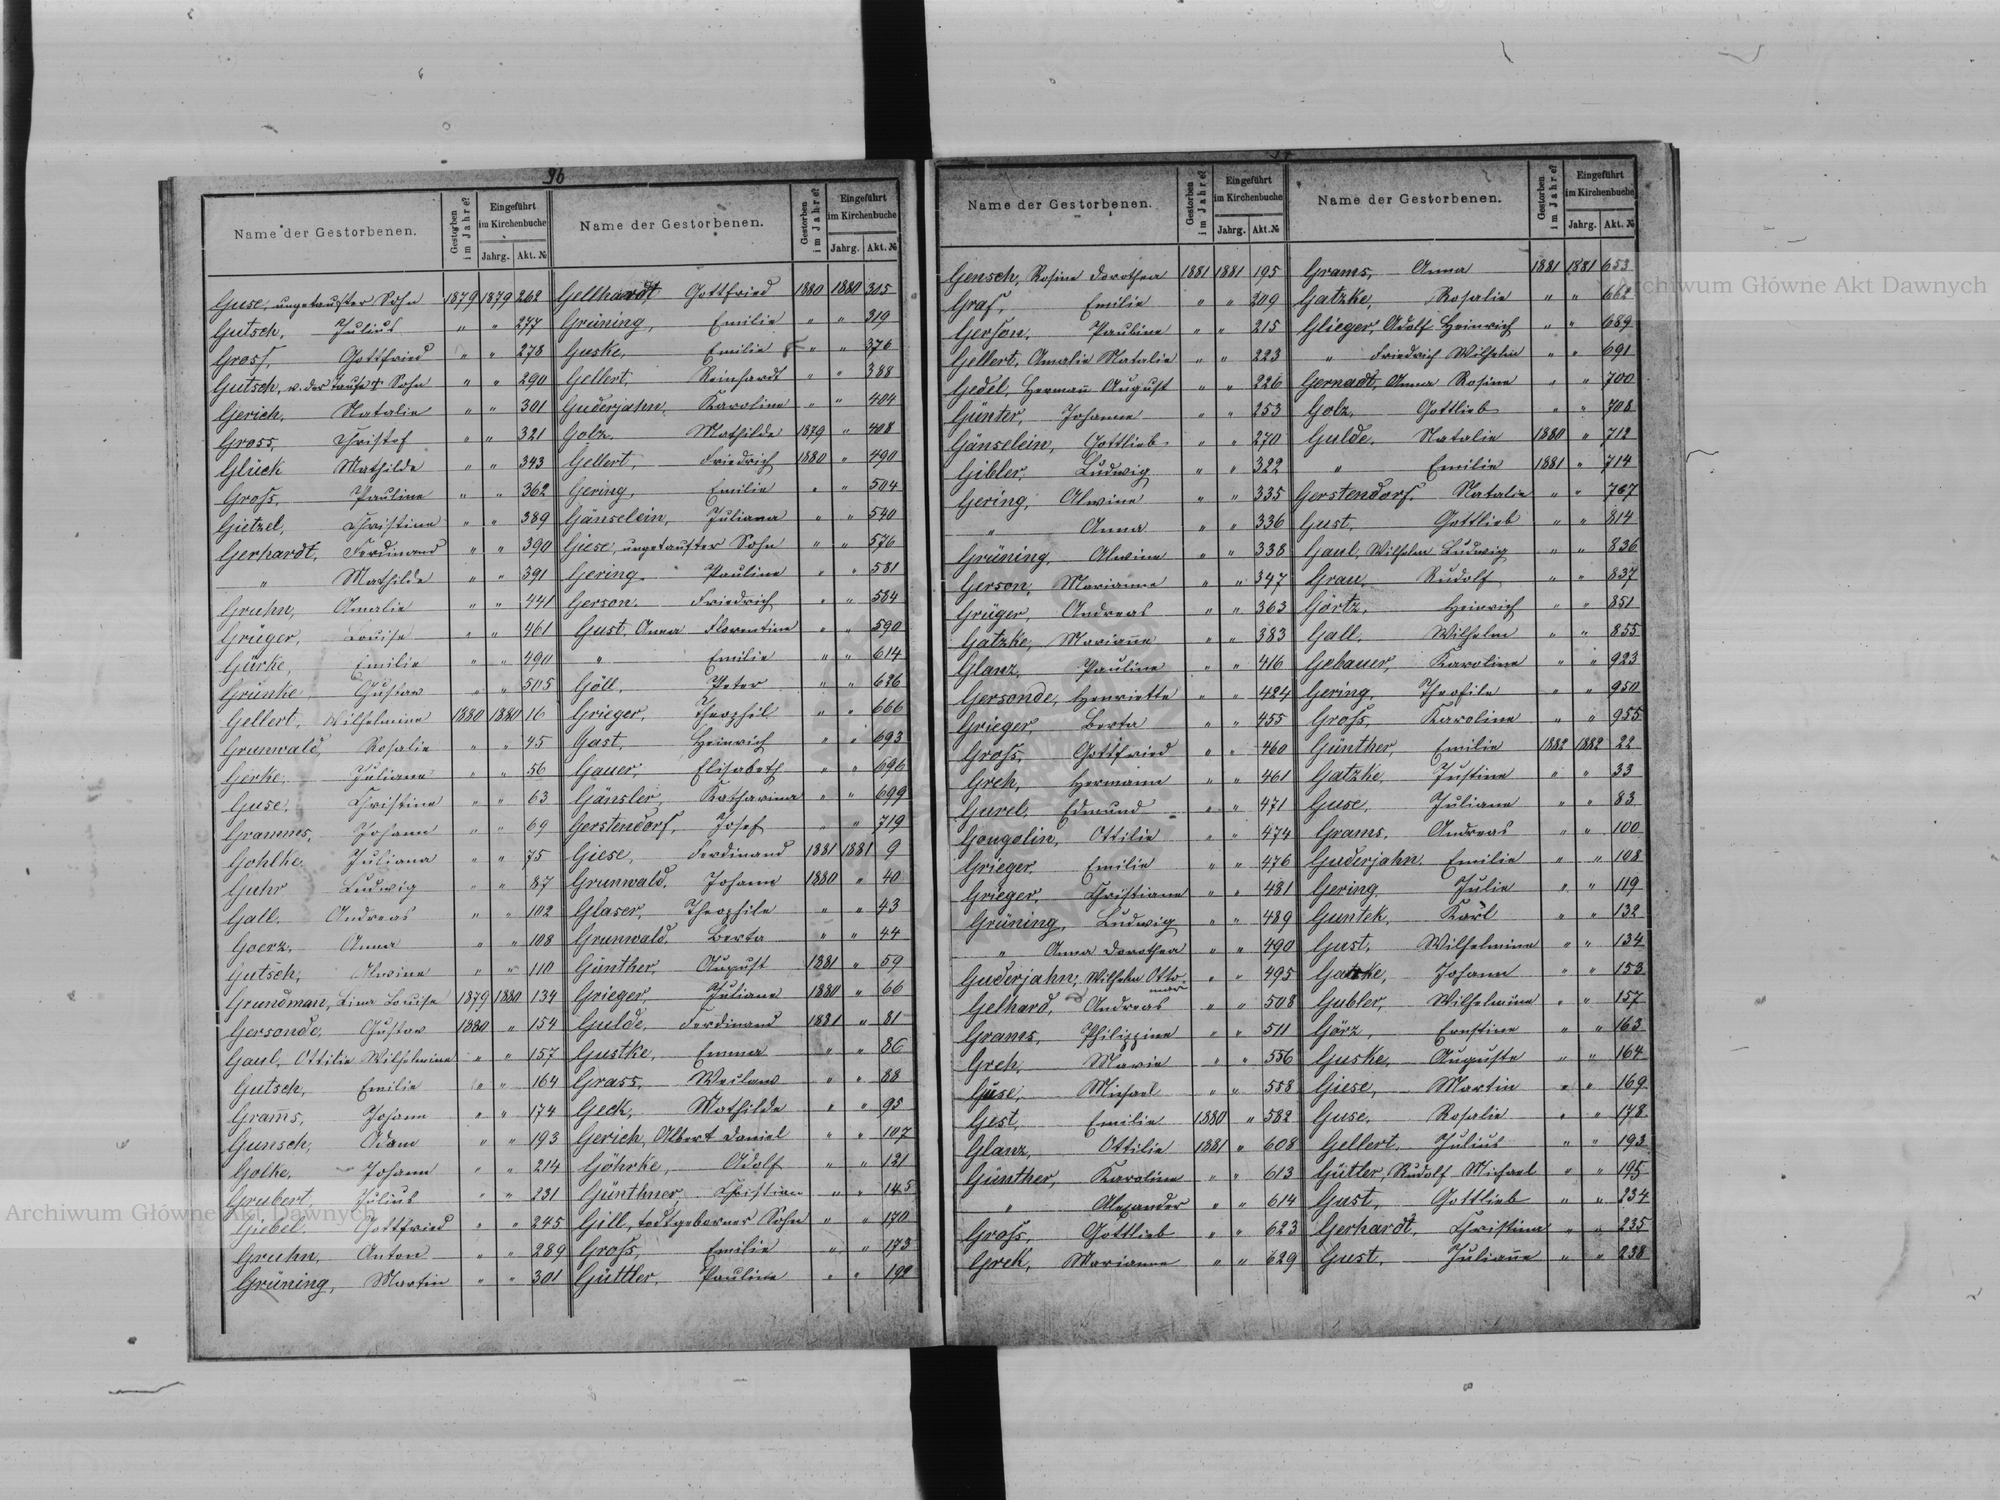 96
Name der Gestorbenen. Gestorben im Jahre? Eingeführt im Kirchenbuche Jahrg. Akt. №
Guse, ungetaufter Sohn 1879 1879 262
Gutsch, Julius " " 277
Gross, Gottfried " " 278
Gutsch, v. der Taufe † Sohn " " 290
Gerich, Natalie " " 301
Gross, Christof " " 321
Glück Mathilde " " 343
Gross, Pauline " " 362
Gietzel, Christine " " 389
Gerhardt, Ferdinand " " 390
" Mathilde " " 391
Gruhn, Amalie " " 441
Grüger, Louise " " 461
Gürke, Emilie " " 490
Grünke Gustav " " 505
Gellert, Wilhelmine 1880 1880 16
Grunwald, Rosalie " " 45
Gerke, Juliane " " 56
Guse, Christine " " 63
Grammes, Johann " " 69
Gohlke, Juliana " " 75
Guhr Ludwig " " 87
Gall, Andreas " " 102
Goerz, Anna " " 108
Gutsch, Alwine " " 110
Grundman, Lina Louise 1879 1880 134
Gersonde, Gustav 1880 " 154
Gaul, Ottilie Wilhelmine " " 157
Gutsch, Emilie " " 164
Grams, Johann " " 174
Gunsch, Adam " " 193
Golke, Johann " " 214
Grubert, Julius " " 231
Giebel, Gottfried " " 245
Gruhn, Anton " " 289
Grüning, Martin " " 301
Name der Gestorbenen. Gestorben im Jahre? Eingeführt im Kirchenbuche Jahrg. Akt. №
Gellhardt Gottfried 1880 1880 305
Grüning, Emilie " " 319
Guske, Emilie " " 376
Gellert, Reinhardt " " 388
Guderjahn, Karoline " " 404
Golz, Mathilde 1879 " 408
Gellert, Friedrich 1880 " 490
Gering, Emilie " " 504
Gänselein, Juliana " " 540
Giese, ungetaufter Sohn " " 576
Gering, Pauline " " 581
Gerson, Friedrich " " 584
Gust, Anna Florentine " " 590
" Emilie " " 614
Göll, Peter " " 626
Grieger, Theophil " " 666
Gast, Heinrich " " 693
Gauer, Elisabeth " " 696
Gänsler, Katharina " " 699
Gerstendorf, Josef " " 719
Giese, Ferdinand 1881 1881 9
Grunwald, Johann 1880 " 40
Glaser, Theophile " " 43
Grunwald, Berta " " 44
Günther, August 1881 " 59
Grieger, Juliane 1880 " 66
Gulde, Ferdinand 1881 " 81
Gustke, Emma " " 86
Grass, Weslaus " " 88
Geck, Mathilde " " 95
Gerich, Albert Daniel " " 107
Göhrke, Adolf " " 121
Günthner, Christian " " 145
Gill, todtgeborner Sohn " " 170
Gross, Emilie " " 173
Güttler, Pauline " " 199
Name der Gestorbenen. Gestorben im Jahre? Eingeführt im Kirchenbuche Jahrg. Akt. №
Gensch, Rosine Dorothea 1881 1881 195
Graf, Emilie " " 209
Gerson, Pauline " " 215
Gellert, Amalie Natalie " " 223
Gedel, Hermañ August " " 226
Günter, Johanne " " 253
Gänselein, Gottlieb " " 270
Gibler, Ludwig " " 322
Gering, Alwine " " 335
" Anna " " 336
Grüning, Alwine " " 338
Gerson, Marianne " " 347
Grüger, Andreas " " 363
Gatzke, Mariañe " " 383
Glanz, Pauline " " 416
Gersonde, Henriette " " 424
Grieger, Berta " " 455
Gross, Gottfried " " 460
Greh, Hermann " " 461
Gurel, Edmund " " 471
Gougolin, Ottilie " " 474
Grieger, Emilie " " 476
Grieger, Christiane " " 481
Grüning, Ludwig " " 489
" Anna Dorothea " " 490
Guderjahn, Wilhelm Otto- " " 495
mar
Gelhard, Andreas " " 508
Grams, Philippine " " 511
Greh, Marie " " 556
Guse, Michael " " 558
Gest, Emilie 1880 " 582
Glanz, Ottilie 1881 " 608
Günther, Karoline " " 613
" Alexander " " 614
Gross, Gottlieb " " 623
Grek, Marianne " " 629
Name der Gestorbenen. Gestorben im Jahre? Eingeführt im Kirchenbuche Jahrg. Akt. №
Grams, Anna 1881 1881 653
Gatzke, Rosalie " " 662
Glieger, Adolf Heinrich " " 689
" Friedrich Wilhelm " " 691
Gernadt, Anna Rosine " " 700
Golz, Gottlieb " " 708
Gulde, Natalie 1880 " 712
" Emilie 1881 " 714
Gerstendorf, Natalie " " 767
Gust, Gottlieb " " 814
Gaul, Wilhelm Ludwig " " 836
Grau, Rudolf " " 837
Görtz, Heinrich " " 851
Gall, Wilhelm " " 855
Gebauer, Karoline " " 923
Gering, Theofile " " 950
Gross, Karoline " " 955
Günther, Emilie 1882 1882 22
Gatzke, Justine " " 33
Guse, Juliane " " 83
Grams, Andreas " " 100
Guderjahn Emilie " " 108
Gering Julie " " 119
Guntek, Karl " " 132
Gust, Wilhelmine " " 134
Gatzke, Johann " " 153
Gubler, Wilhelmine " " 157
Görz, Ernstine " " 163
Guske, Auguste " " 164
Giese, Martin " " 169
Guse, Rosalie " " 178
Gellert, Julius " " 193
Gütler, Rudolf Michael " " 195
Gust, Gottlieb " " 234
Gerhardt, Christina " " 235
Gust, Juliañe " " 238
Archiwum Główne Akt Dawnych
Archiwum Główne Akt Dawnych